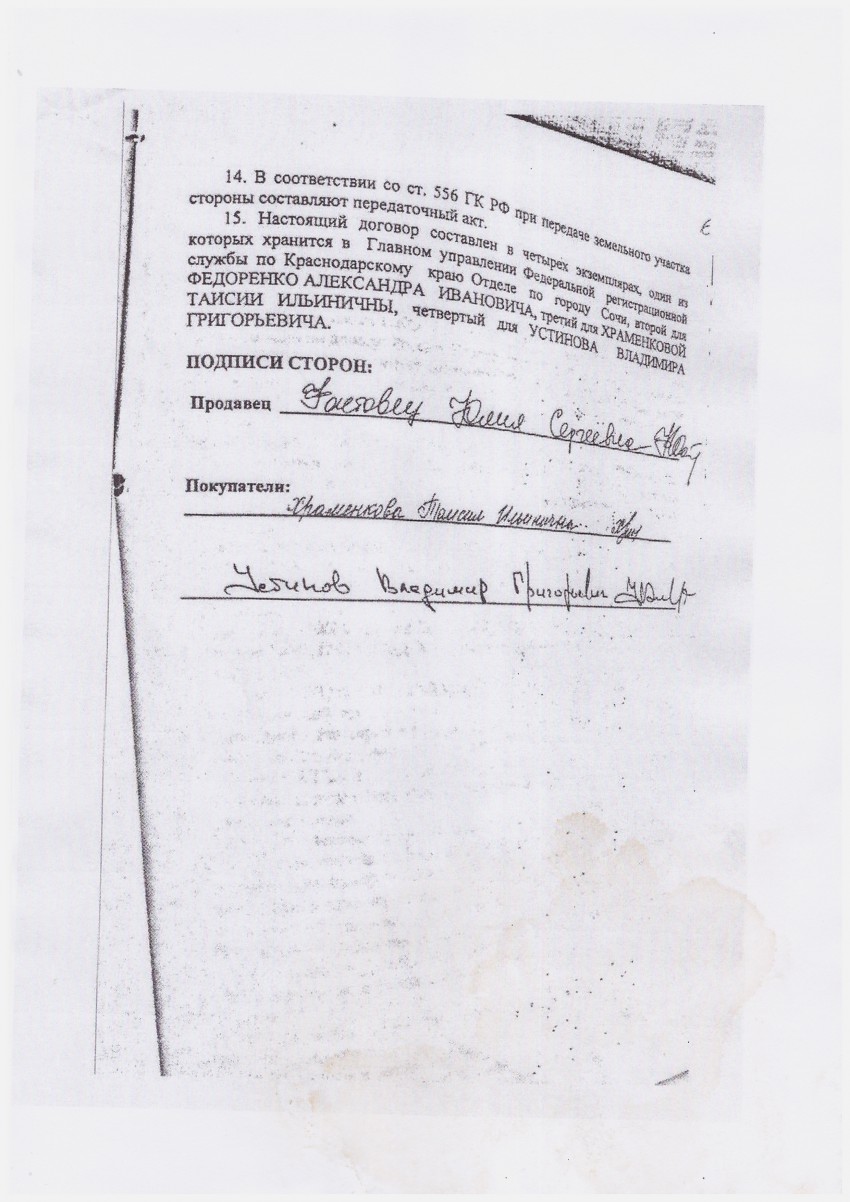 14. В соответствии со ст. 556 ГК РФ при передаче земельного участка
стороны составляют передаточный акт.
15. Настоящий договор составлен в четырех экземплярах, один из
которых хранится в Главном управлении Федеральной регистрационной
службы по Краснодарскому краю Отделе по городу Сочи, второй для
ФЕДОРЕНКО АЛЕКСАНДРА ИВАНОВИЧА, третий для ХРАМЕНКОВОЙ
ТАИСИИ ИЛЬИНИЧНЫ, четвертый для УСТИНОВА ВЛАДИМИРА
ГРИГОРЬЕВИЧА.
ПОДПИСИ СТОРОН:
Продавец Фастовец Юлия Сергеевна
Покупатели:
Храменкова Таисия Ильинична
Устинов Владимир Григорьевич